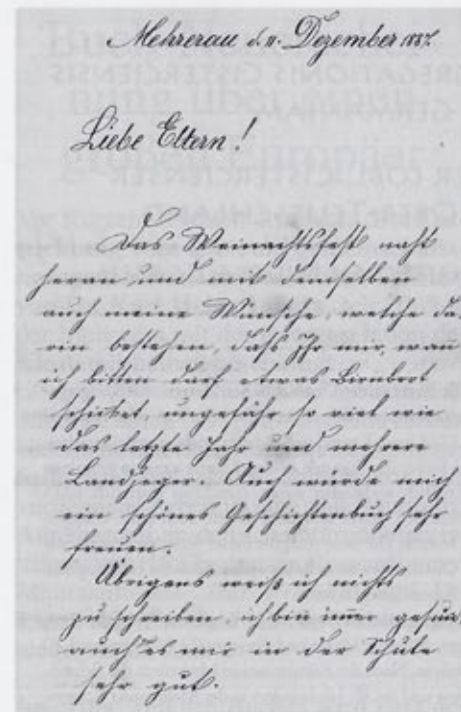 Mehrerau d. 11. Dezember 1887.
Liebe Eltern!
Das Weinachtsfest naht
heran und mit demselben
auch meine Wünsche, welche da-
rin bestehen, dass Ihr mir, wann
ich bitten darf etwas Birnbrot
schicket, ungefähr so viel wie
das letzte Jahr und mehrere
Landjeger. Auch würde mich
ein schönes Geschichtenbuch sehr
freuen.
Übrigens weiß ich nichts
zu schreiben ich bin immer gesund,
auch es mir in der Schule
sehr gut.